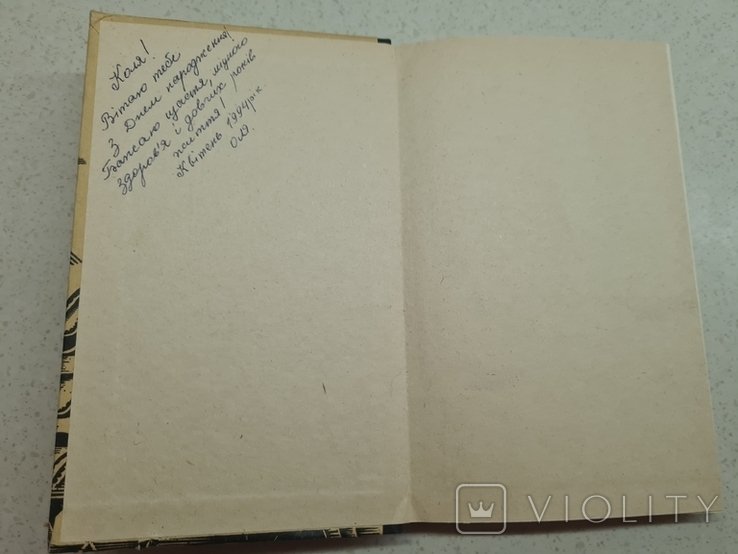 Коля!
Вітаю тебе
З Днем народження!
Бажаю щастя, міцного
здоров'я і довгих років
життя!
Квітень 1994 рік.
Оля.
VIOLITY